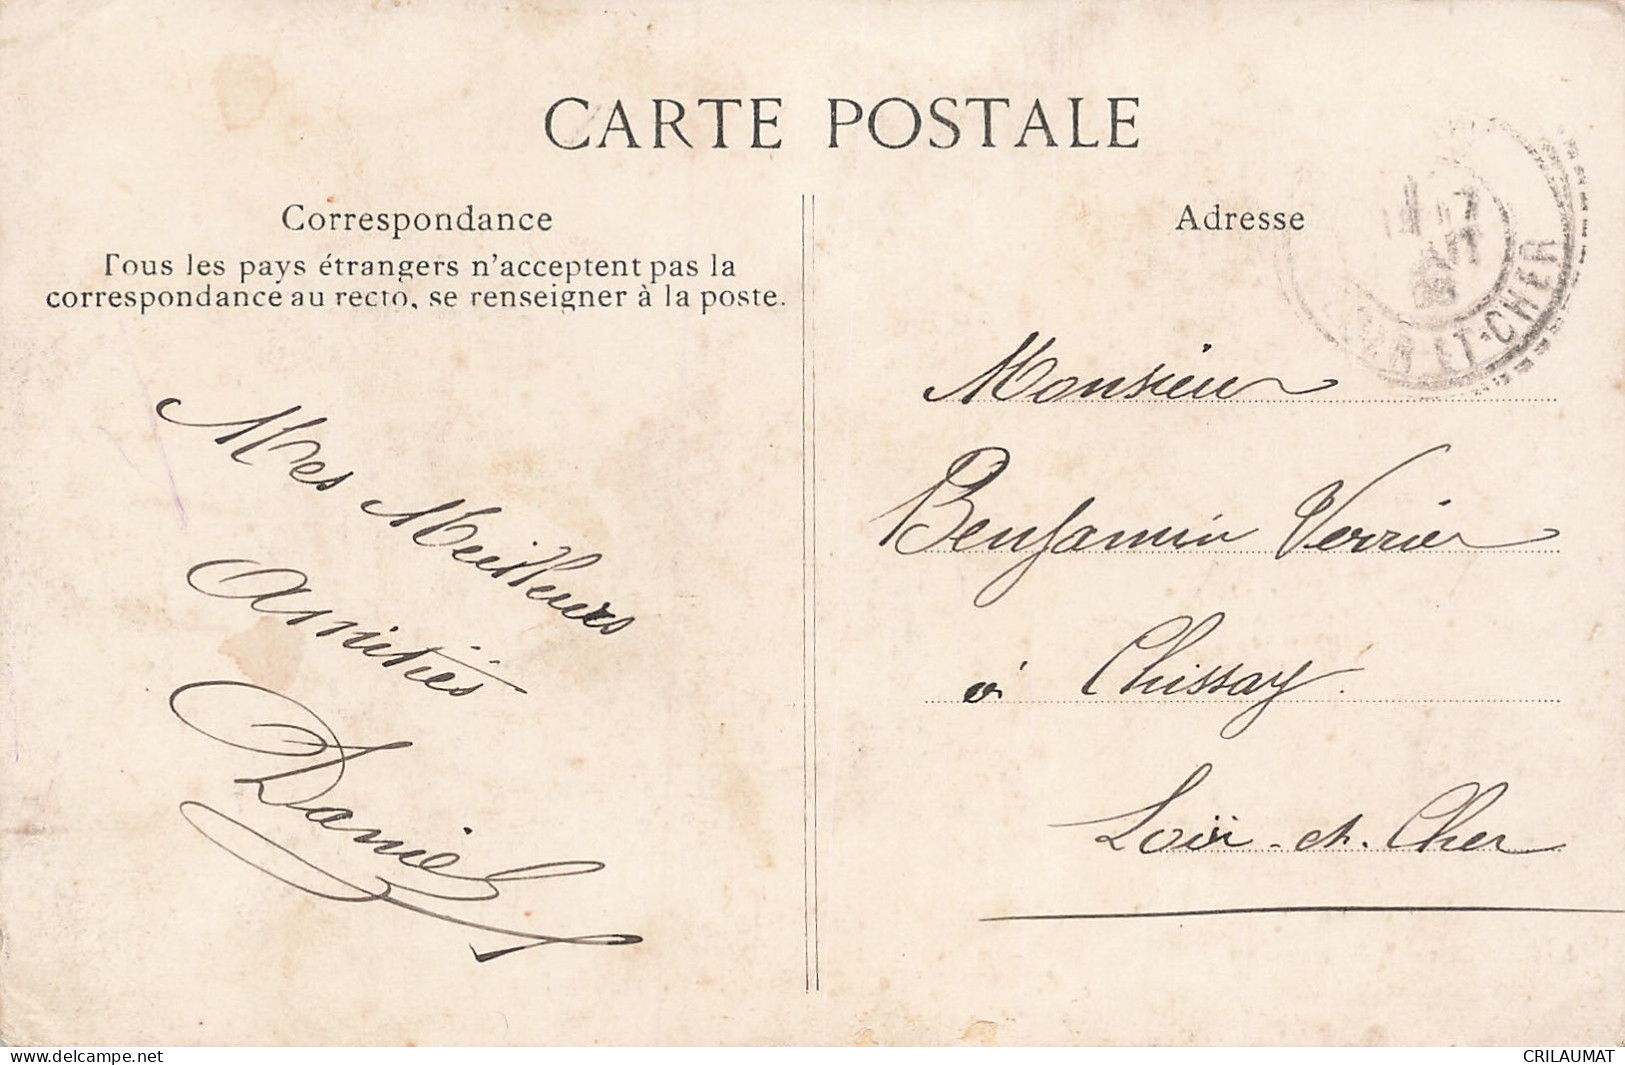 CARTE POSTALE
Correspondance
Tous les pays étrangers n'acceptent pas la
correspondance au recto, se renseigner à la poste.
Mes Meilleurs
Amitiés
Daniel
Adresse
ET-CHER
Monsieur
Benjamin Verrier
à Chissay
Loir-et-Cher
www.delcampe.net
CRILAUMAT